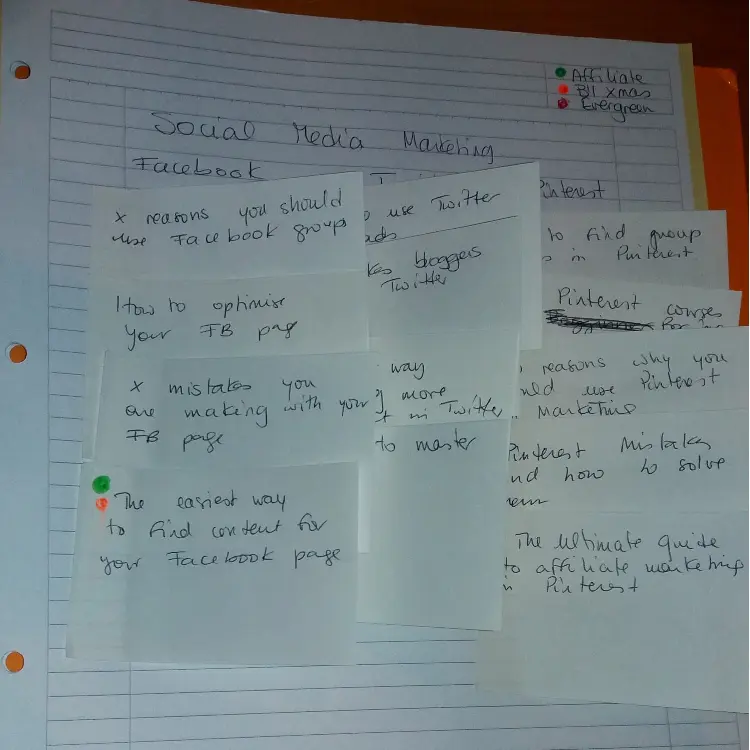 Affiliate
BJ Xmas
Evergreen
Social Media Marketing
Facebook
Pinterest
x reasons you should
use Facebook groups
How to optimise
your FB page
x mistakes you
are making with your
FB page
The easiest way
to find content for
your Facebook page
use Twitter
bloggers
Twitter
way
more
in Twitter
to master
to find group
in Pinterest
Pinterest courses
reasons why you
use Pinterest
Marketing
Pinterest Mistakes
how to solve
The Ultimate guide
to affiliate marketing
Pinterest